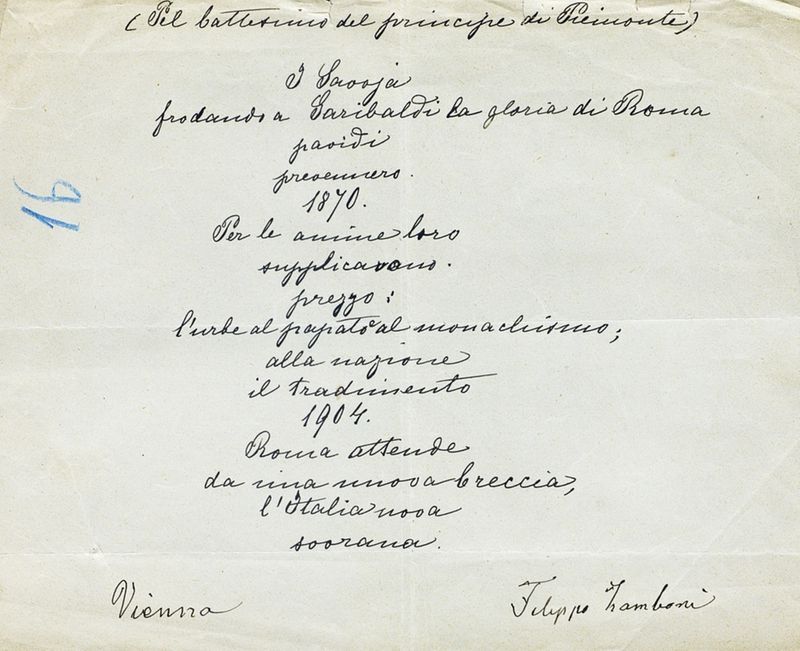 (Pel battesimo del principe di Piemonte)
I Savoja
frodando a Garibaldi la gloria di Roma
pavidi
prevennero.
1870.
Per le anime loro
supplicavano.
prezzo:
l'urbe al papato al monachismo;
alla nazione
il tradimento
1904.
Roma attende
da una nuova breccia,
l'Italia nova
sovrana.
Vienna
Filippo Zamboni
16